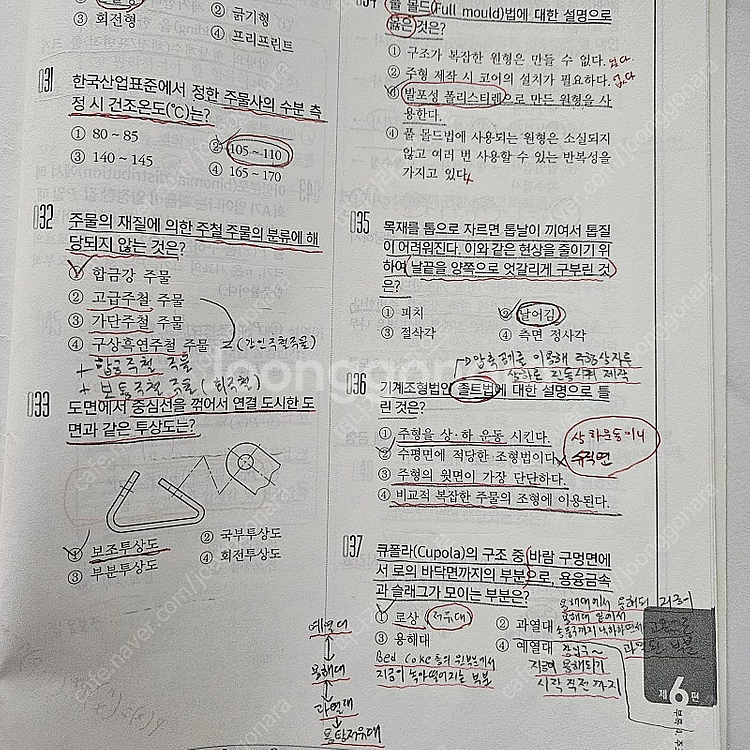 ③ 회전형
② 긁기형
④ 프리프린트
031
한국산업표준에서 정한 주물사의 수분 측
정 시 건조온도(℃)는?
① 80 ~ 85
② 105 ~ 110
③ 140 ~ 145
④ 165 ~ 170
032
주물의 재질에 의한 주철 주물의 분류에 해
당되지 않는 것은?
합금강 주물
② 고급주철 주물
③ 가단주철 주물
④ 구상흑연주철 주물
(강인주철주물)
+ 합금주철 주물
+ 보통주철 주물 (회주철)
033
도면에서 중심선을 꺾어서 연결 도시한 도
면과 같은 투상도는?
① 보조투상도
② 국부투상도
③ 부분투상도
④ 회전투상도
풀 몰드(Full mould)법에 대한 설명으로
옳은 것은?
① 구조가 복잡한 원형은 만들 수 없다. 있다.
② 주형 제작 시 코어의 설치가 필요하다. 없다
발포성 폴리스티렌으로 만든 원형을 사
용한다.
④ 풀 몰드법에 사용되는 원형은 소실되지
않고 여러 번 사용할 수 있는 반복성을
가지고 있다.
035
목재를 톱으로 자르면 톱날이 끼여서 톱질
이 어려워진다. 이와 같은 현상을 줄이기 위
하여 날끝을 양쪽으로 엇갈리게 구부린 것
은?
① 피치
② 날어김
③ 절삭각
④ 측면 정사각
상하로 진동시켜 제작
036
기계조형법인 졸트법에 대한 설명으로 틀
린 것은?
① 주형을 상·하 운동 시킨다.
② 수평면에 적당한 조형법이다.
상하운동이니
수직면
③ 주형의 윗면이 가장 단단하다.
④ 비교적 복잡한 주물의 조형에 이용된다.
037
큐폴라(Cupola)의 구조 중 바람 구멍면에
서 로의 바닥면까지의 부분으로, 용융금속
과 슬래그가 모이는 부분은?
① 로상 (저유대)
② 과열대
③ 용해대
④ 예열대
Bed Coke 층의 윗면에서
지금이 녹아떨어지는 부분
지금이 용해되기
시작 직전까지
예열대
용해대
과열대
용탕저유대
제6편